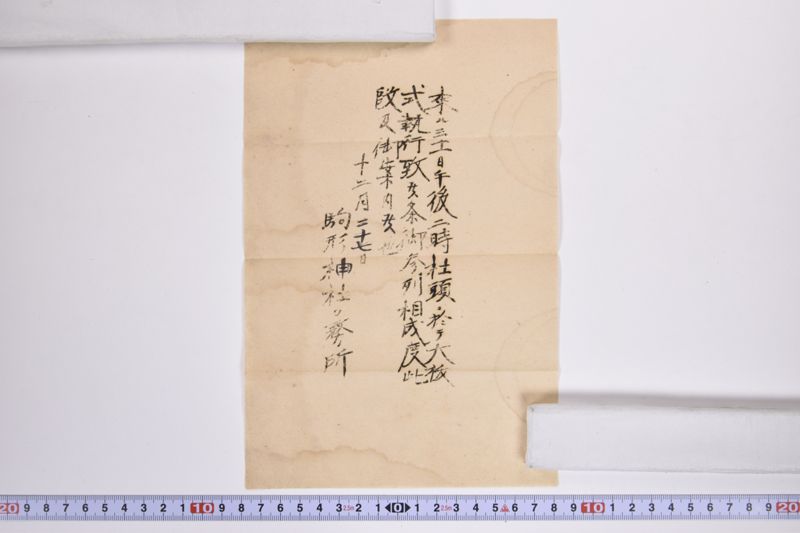 来ル三十一日午後二時社頭ニ於テ大祓
式執行致候条御参列相成度此
段及御案内候也
十二月二十七日
駒形神社々務所
20 9 8 7 6 5 4 3 2 1 10 9 8 7 6 5 4 3 2.5m 2 1 0 1 2 2.5m 3 4 5 6 7 8 9 10 1 2 3 4 5 6 7 8 9 20